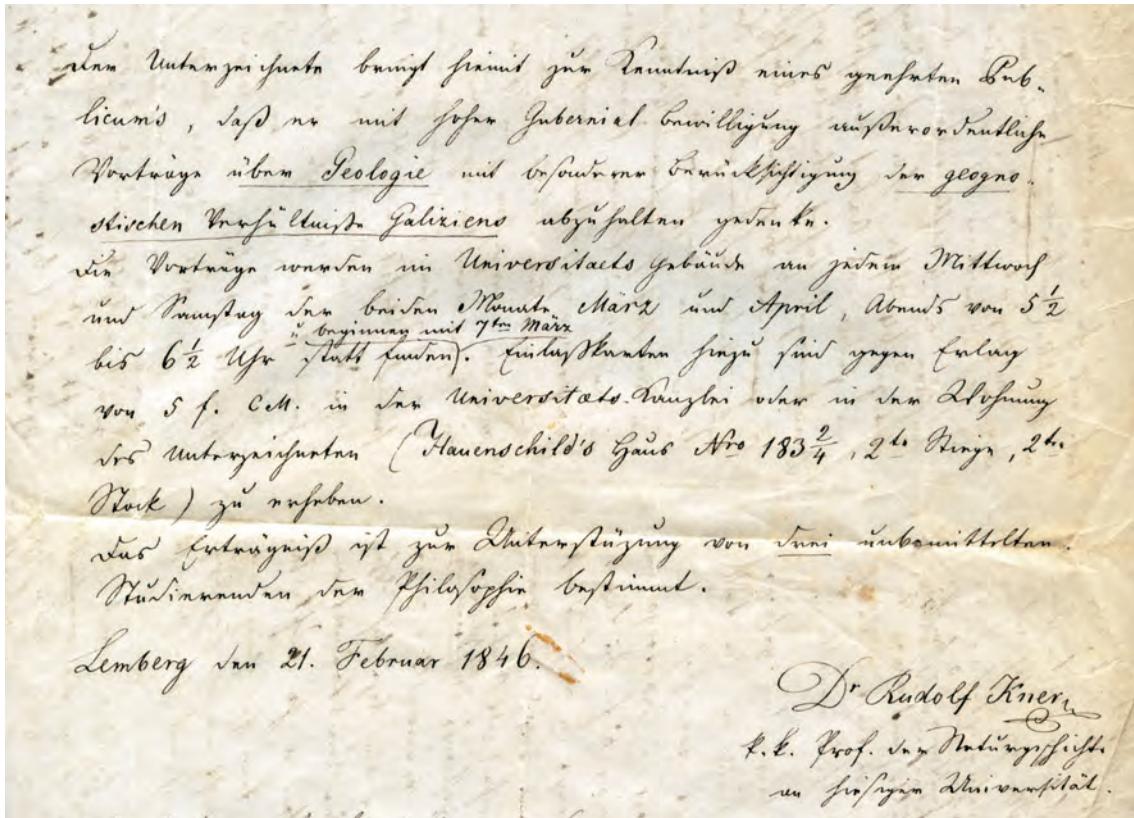 Der Unterzeichnete bringt hiemit zur Kenntniß eines geehrten Pub-
licum's, daß er mit hoher Gubernial Bewilligung außerordentliche
Vorträge über Geologie mit besonderer Berücksichtigung der geogno-
stischen Verhältniße Galiziens abzuhalten gedenke.
Die Vorträge werden im Universitaets Gebäude an jedem Mittwoch
und Samstag der beiden Monate März und April, Abends von 5 1/2
u beginnen mit 7ten März
bis 6 1/2 Uhr statt finden. Einlaßkarten hiezu sind gegen Erlag
von 5 f. C.M. in der Universitäts-Kanzlei oder in der Wohnung
des Unterzeichneten (Hauenschild's Haus Nro 183 2/4, 2te Stiege, 2ter
Stock) zu erheben.
Das Erträgniß ist zur Unterstüzung von drei unbemittelten
Studierenden der Philosophie bestimmt.
Lemberg den 21. Februar 1846.
Dr Rudolf Kner
k.k. Prof. der Naturgschichte
an hiesiger Universität.